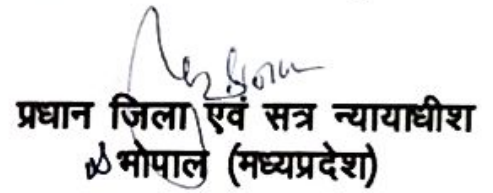 प्रधान जिला एवं सत्र न्यायाधीश
भोपाल (मध्यप्रदेश)